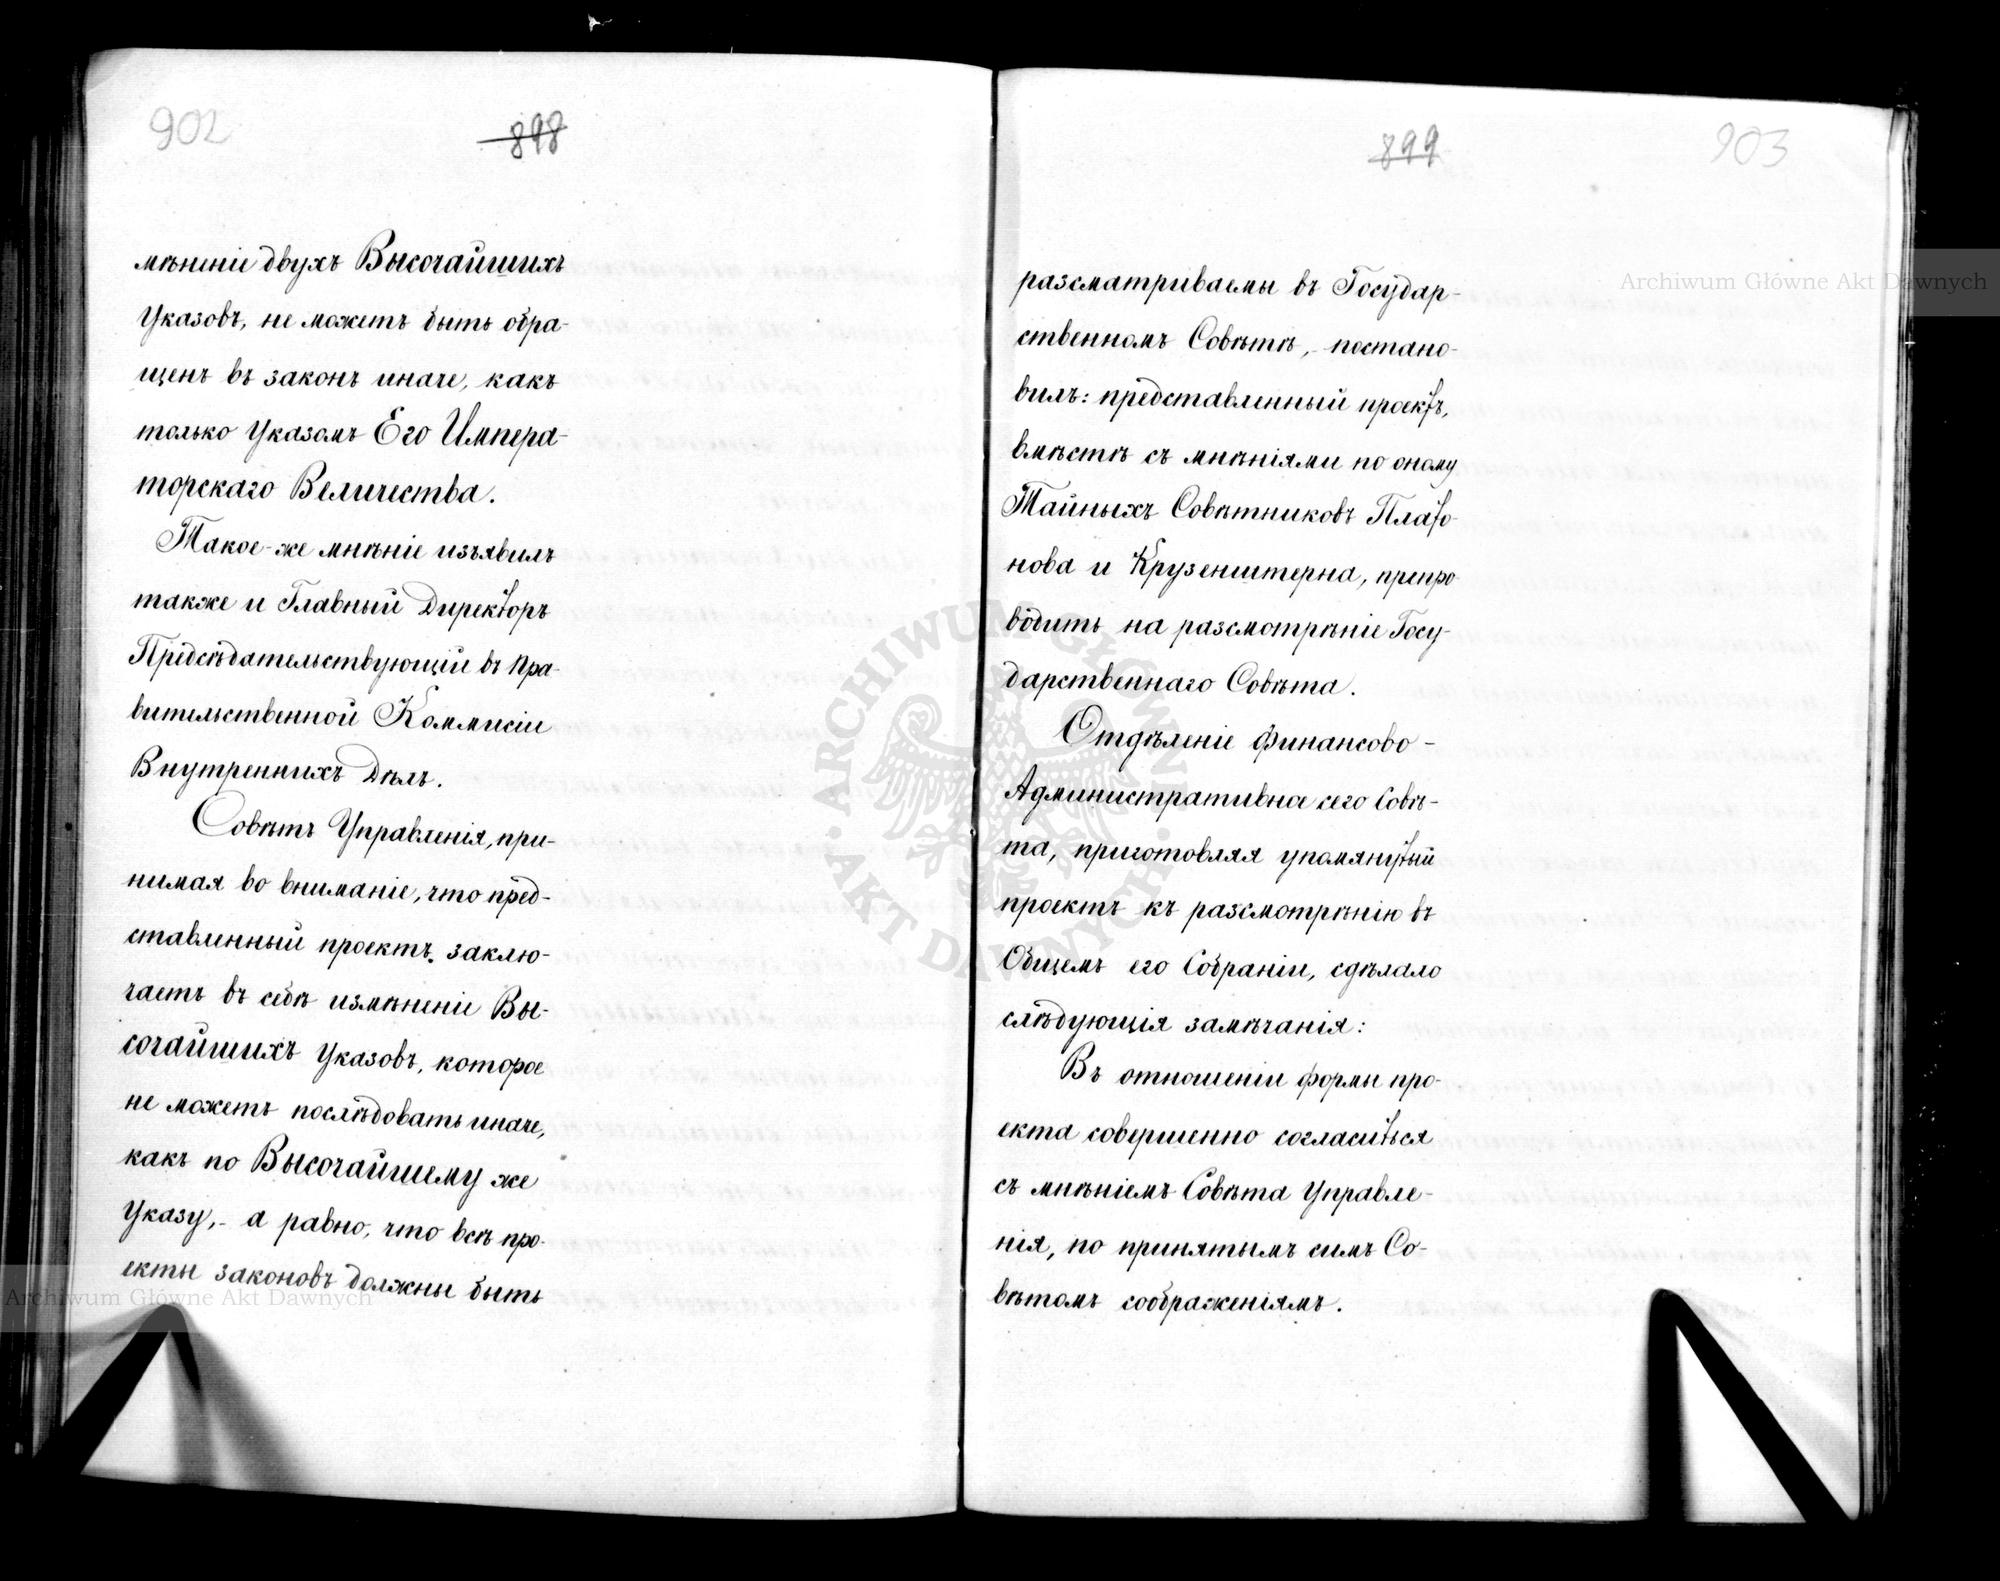 902
898
мѣненіе двухъ Высочайшихъ
Указовъ, не можетъ быть обра-
щенъ въ законъ иначе, какъ
только Указомъ Его Импера-
торскаго Величества.
Такое-же мнѣніе изъявилъ
также и Главный Директоръ
Предсѣдательствующій въ Пра-
вительственной Коммисіи
Внутреннихъ Дѣлъ.
Совѣтъ Управленія, при-
нимая во вниманіе, что пред-
ставленный проектъ заклю-
чаетъ въ себѣ измѣненіе Вы-
сочайшихъ Указовъ, которое
не можетъ послѣдовать иначе,
какъ по Высочайшему же
Указу,- а равно, что всѣ про-
екты законовъ должны быть
899
903
разсматриваемы въ Государ-
ственномъ Совѣтѣ,- постано-
вилъ: представленный проектъ,
вмѣстѣ съ мнѣніями по оному
Тайныхъ Совѣтниковъ Плато-
нова и Крузенштерна, препро-
водить на разсмотрѣніе Госу-
дарственнаго Совѣта.
Отдѣленіе Финансово-
Административное сего Совѣ-
та, приготовляя упомянутый
проектъ къ разсмотрѣнію въ
Общемъ его Собраніи, сдѣлало
слѣдующія замѣчанія:
Въ отношеніи формы про-
екта совершенно согласиться
съ мнѣніемъ Совѣта Управле-
нія, по принятымъ симъ Со-
вѣтомъ соображеніямъ.
Archiwum Główne Akt Dawnych
Archiwum Główne Akt Dawnych
ARCHIWUM GŁÓWNE AKT DAWNYCH